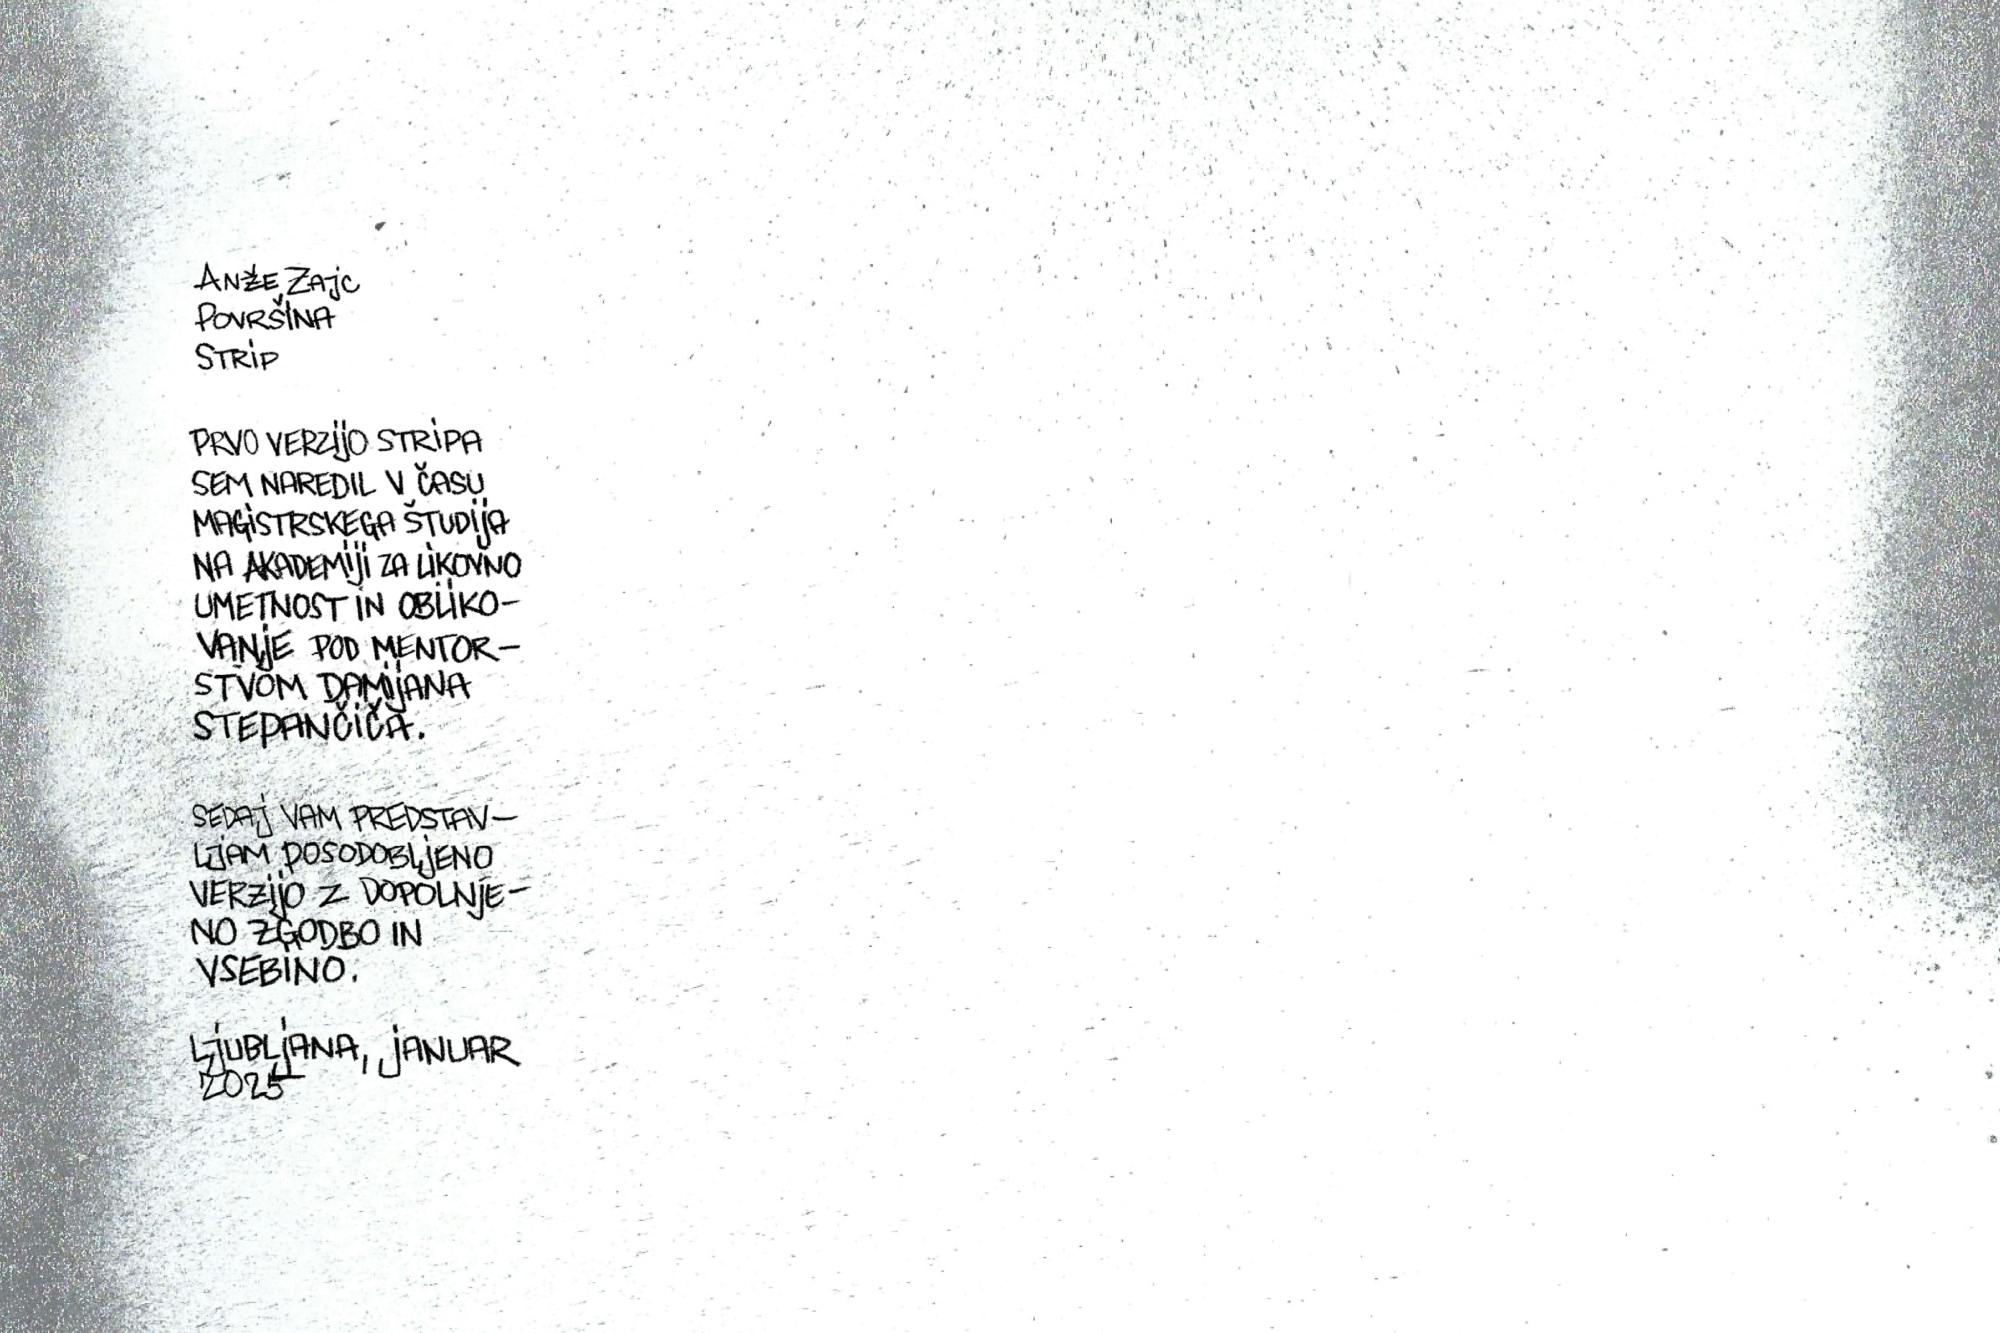 ANŽE ZAJC
POVRŠINA
STRIP
PRVO VERZIJO STRIPA
SEM NAREDIL V ČASU
MAGISTRSKEGA ŠTUDIJA
NA AKADEMIJI ZA LIKOVNO
UMETNOST IN OBLIKO-
VANJE POD MENTOR-
STVOM DAMIJANA
STEPANČIČA.
SEDAJ VAM PREDSTAV-
LJAM POSODOBLJENO
VERZIJO Z DOPOLNJE-
NO ZGODBO IN
VSEBINO.
LJUBLJANA, JANUAR
2025